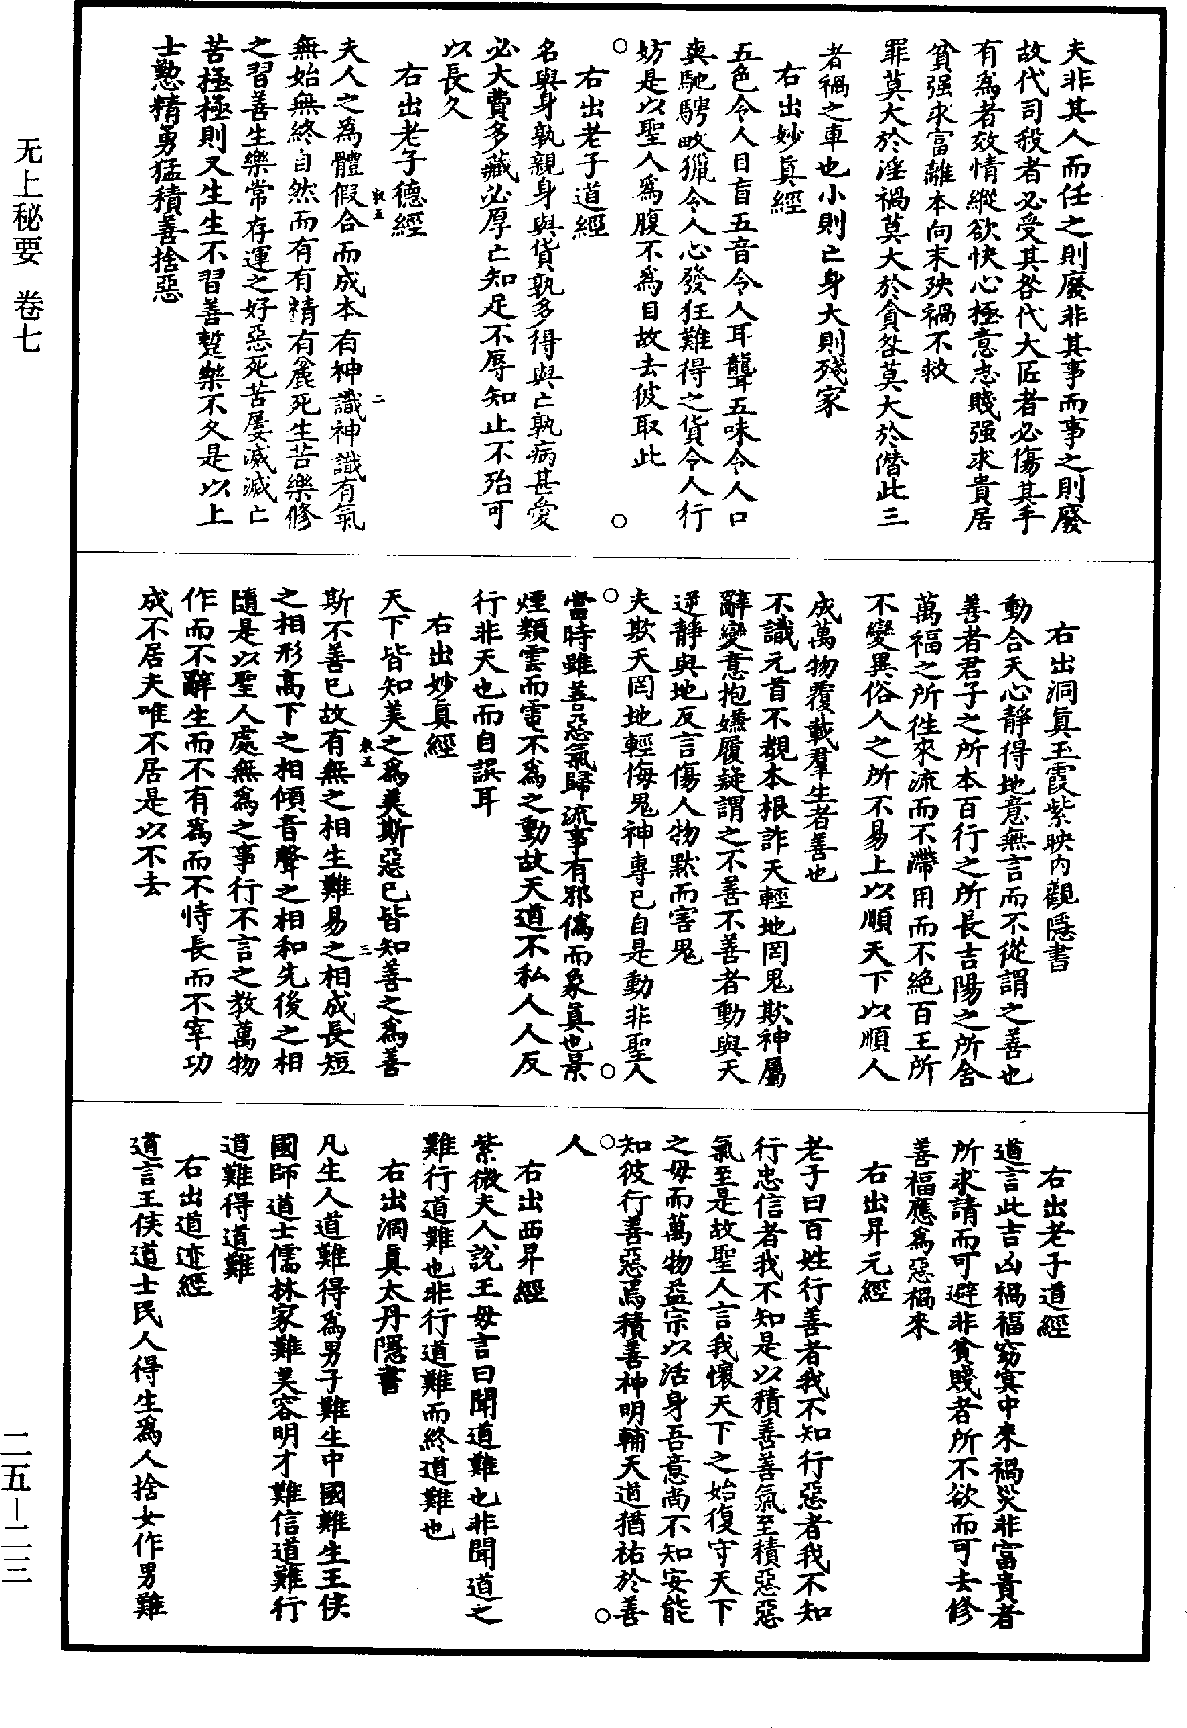 夫非其人而任之則廢非其事而事之則廢
故代司殺者必受其咎代大匠者必傷其手
有為者效情縱欲快心極意志賤强求貴居
貧强求富離本向末殃禍不救
罪莫大於淫禍莫大於貪咎莫大於僭此三
者禍之車也小則亡身大則殘家
右出妙真經
五色令人目盲五音令人耳聾五味令人口
爽馳騁畋獵令人心發狂難得之貨令人行
妨是以聖人為腹不為目故去彼取此
右出老子道經
名與身孰親身與貨孰多得與亡孰病甚愛
必大費多藏必厚亡知足不辱知止不殆可
以長久
右出老子德經
夫人之為體假合而成本有神識神識有氣
無始無終自然而有有精有麁死生苦樂修
之習善生樂常存運之好惡死苦屢滅滅亡
苦極極則又生生不習善蹔樂不久是以上
士懃精勇猛積善捨惡
右出洞真玉霞紫映內觀隱書
動合天心靜得地意無言而不從謂之善也
善者君子之所本百行之所長吉陽之所舍
萬福之所往來流而不滯用而不絕百王所
不變異俗人之所不易上以順天下以順人
成萬物覆載羣生者善也
不識元首不覩本根詐天輕地罔鬼欺神屬
辭變意抱嫌履疑謂之不善不善者動與天
逆靜與地反言傷人物默而害鬼
夫欺天罔地輕侮鬼神專已自是動非聖人
當時雖善惡氣歸流事有邪偽而象真也景
煙類雲而電不為之動故天道不私人人反
行非天也而自誤耳
右出妙真經
天下皆知美之為美斯惡已皆知善之為善
斯不善已故有無之相生難易之相成長短
之相形高下之相傾音聲之相和先後之相
隨是以聖人處無為之事行不言之教萬物
作而不辭生而不有為而不恃長而不宰功
成不居夫唯不居是以不去
右出老子道經
道言此吉凶禍福窈冥中來禍災非富貴者
所求請而可避非貧賤者所不欲而可去修
善福應為惡禍來
右出昇元經
老子曰百姓行善者我不知行惡者我不知
行忠信者我不知是以積善善氣至積惡惡
氣至是故聖人言我懷天下之始復守天下
之母而萬物益宗以活身吾意尚不知安能
知彼行善惡焉積善神明輔天道猶祐於善
人
右出西昇經
紫微夫人說王母言曰聞道難也非聞道之
難行道難也非行道難而終道難也
右出洞真太丹隱書
凡生人道難得為男子難生中國難生王侯
國師道士儒林家難美容明才難信道難行
道難得道難
右出道迹經
道言王侯道士民人得生為人捨女作男難
无上秘要 卷七
二五—二三